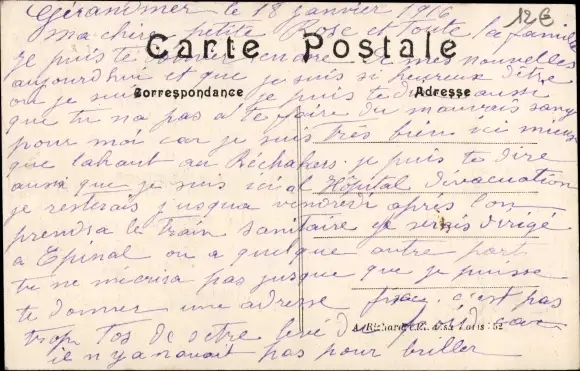 Gérardmer le 18 janvier 1916
12€
Ma chère petite Rose et toute la famille
Carte Postale
je puis te donner encore de mes nouvelles
aujourdhui et que je suis si heureux d'être
ou je suis je puis te dire aussi
Correspondance
Adresse
que tu na pas a te faire du mauvais sang
pour moi car je suis très bien ici mieux
que labaut au je puis te dire
aussi que je suis ici a l Hôpital d'évacuation
je resterais jusqua vendredi après l'on
prendra le train sanitaire je serais dirigé
a Epinal ou a quelque autre part
tu ne mécrira pas jusque que je puisse
te donner une adresse fixe. c'est pas
A. Richard
Paris - 52
trop tos de être levé car
il n'y anavait pas pour briller